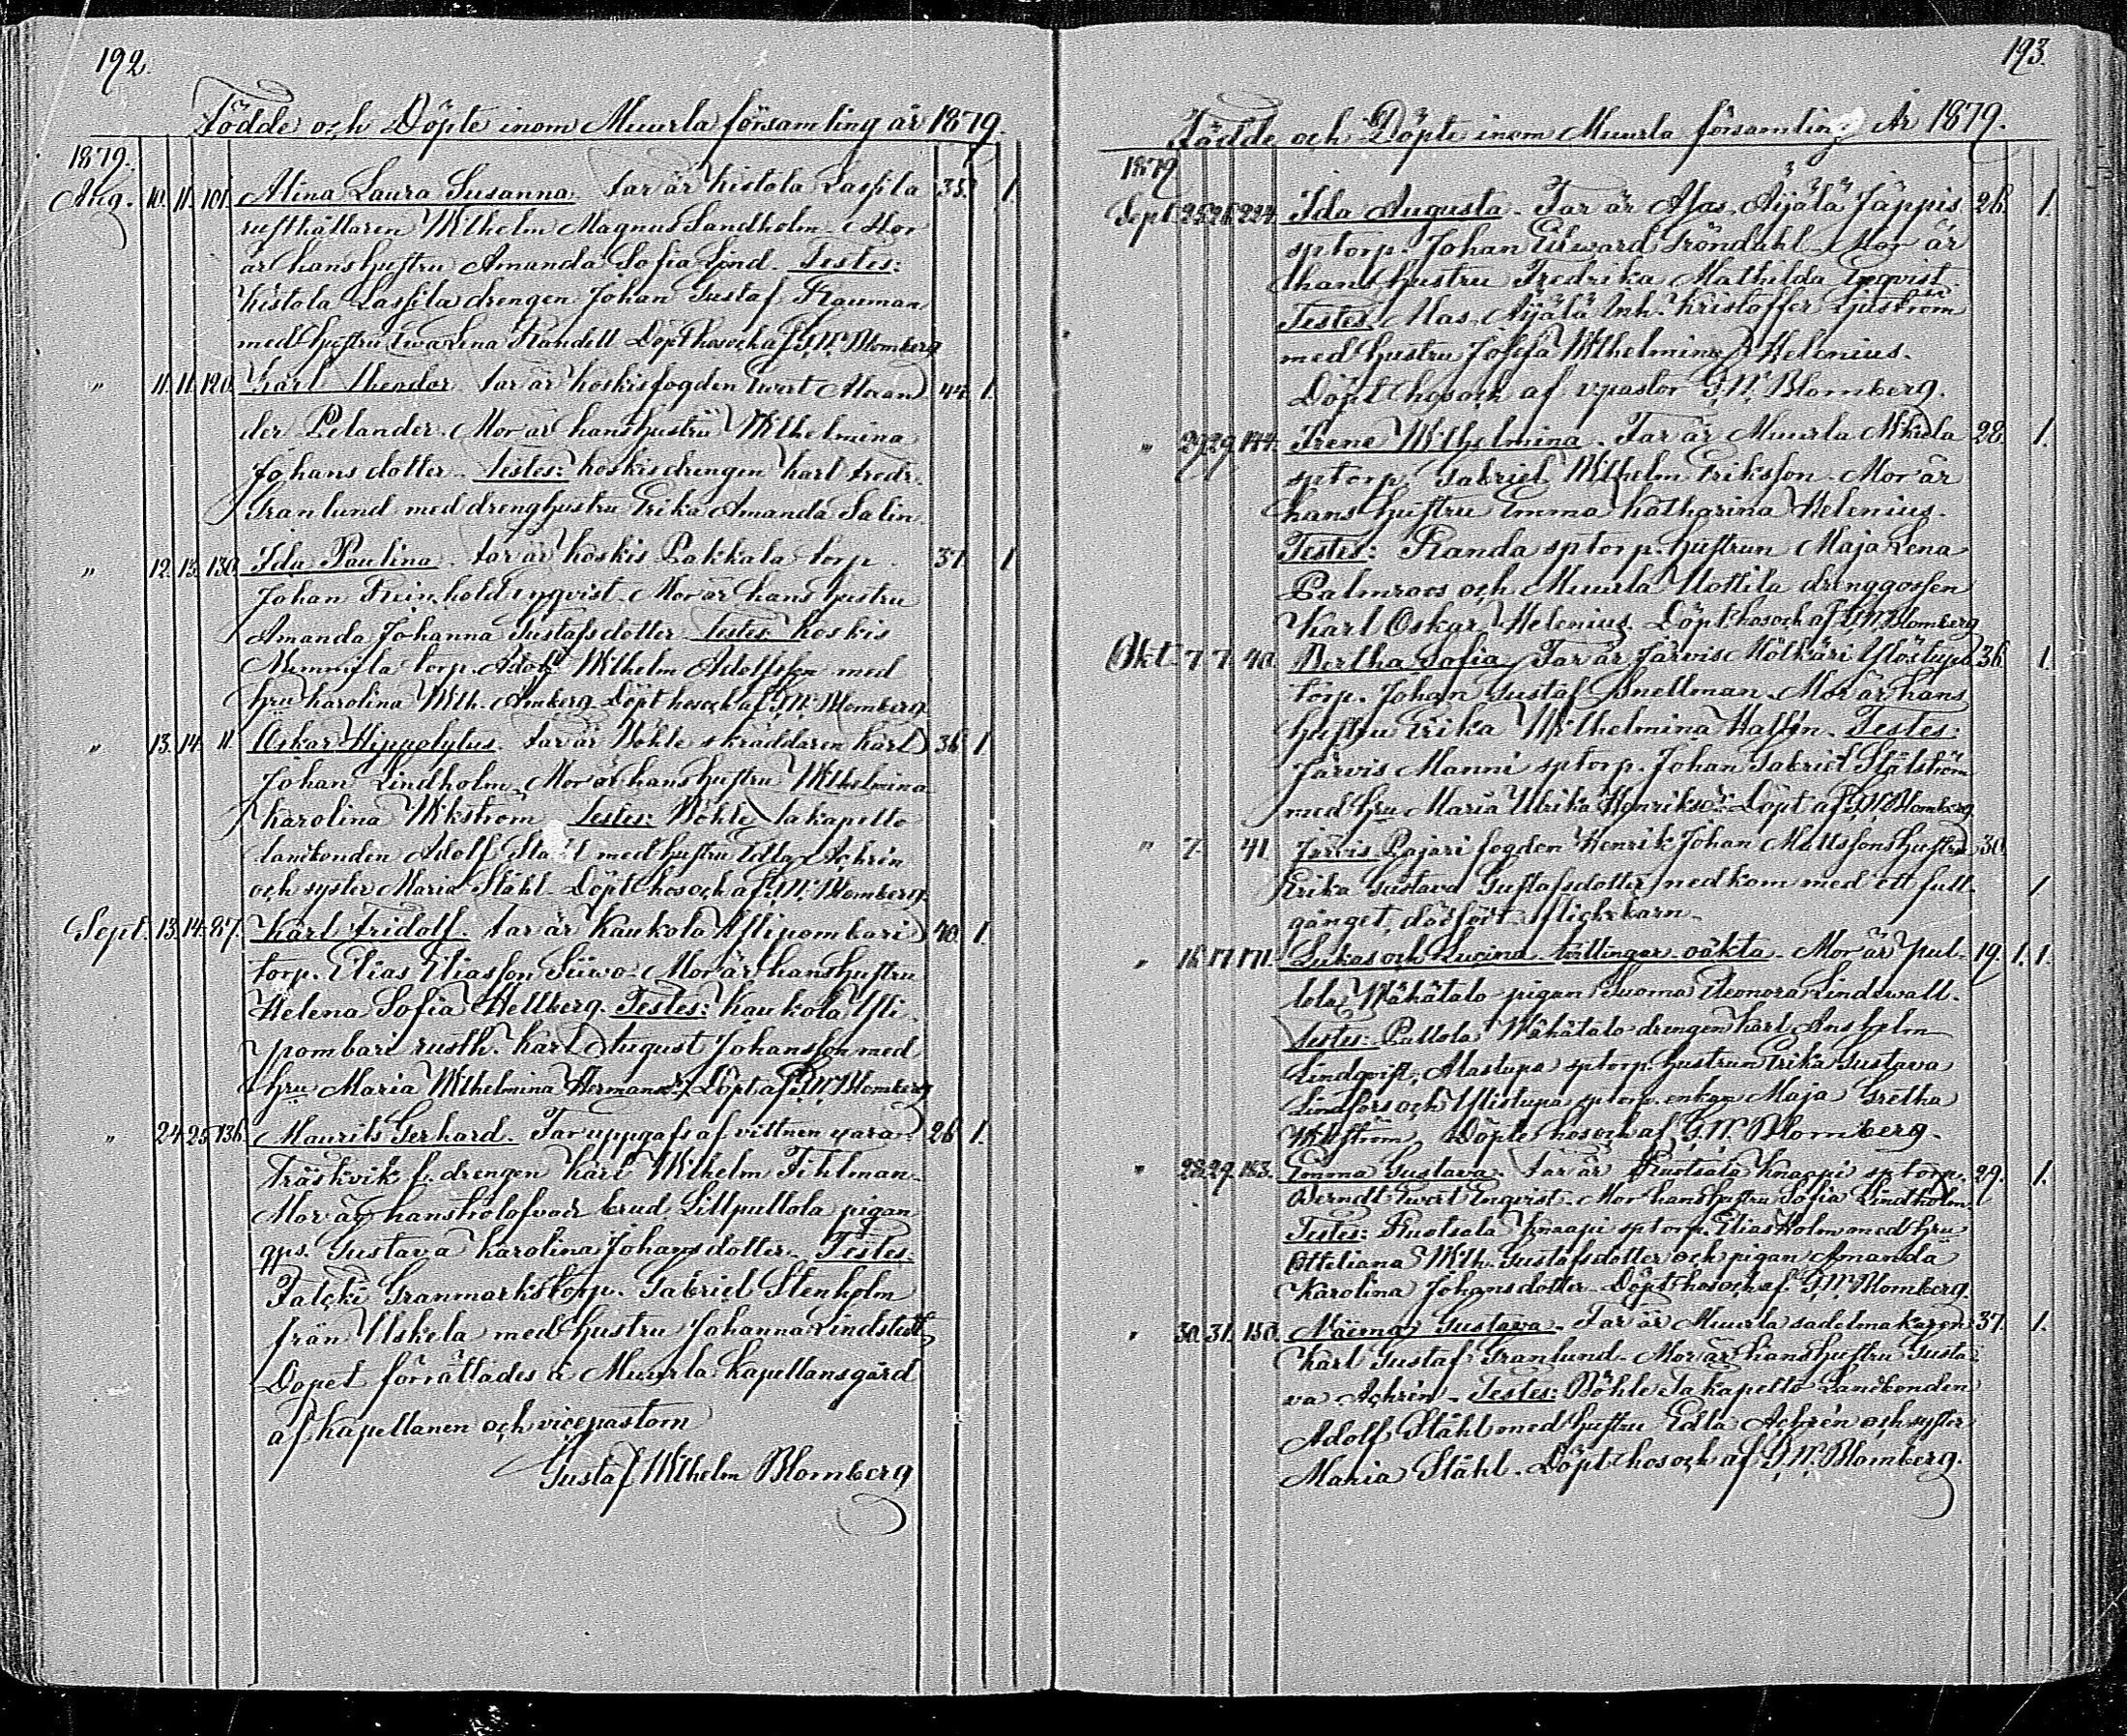 192.
Födde och Döpte inom Muurla församling år 1879.
1879.
Aug. 10. 11. 101. Alina Laura Susanna. Far är Kistola Lassila 35. 1.
rusthållaren Wilhelm Magnus Sandholm. Mor
är hans hustru Amanda Sofia Lind. Testes:
Kistola Lassila drengen Johan Gustaf Rauman
med hustru Ewa Lena Randell Döpt hos och af G. W. Blomberg
" 11. 11. 120. Karl Theodor. Far är Koskis fogden Ewert Alexan 44. 1.
der Pelander. Mor är hans hustru Wilhelmina
Johansdotter. Testes: Koskis drengen Karl Fredr.
Granlund med drenghustru Erika Amanda Salin.
" 12. 13. 130. Ida Paulina. Far är Koskis Pakkala torp. 37. 1
Johan Reinhold Enqvist. Mor är hans hustru
Amanda Johanna Gustafsdotter Testes Koskis
torp. Adolf Wilhelm Adolfsson med
hru Karolina Wilh. Amberg Döpt hos och af G. W. Blomberg
" 13. 14. 11. Oskar Hippolytus. Far är Böhle skräddaren Karl 36. 1.
Johan Lindholm. Mor är hans hustru Wilhelmina
Karolina Wikström Testes: Böhle Takapelto
landbonden Adolf Ståhl med hustru Edla Achrén
och syster Maria Ståhl. Döpt hos och af G. W. Blomberg.
Sept. 13. 14. 87. Karl Fridolf. Far är Kaukola Ylipombari 40. 1.
torp. Elias Eliasson Siiwo. Mor är hans hustru
Helena Sofia Hellberg. Testes: Kaukola Yli
pombari rusth. Karl August Johansson med
hru Maria Wilhelmina Hermansdr. Döpt af G. W. Blomberg
" 24. 25. 136. Maurits Gerhard. Far uppgafs af vittnen vara 26. 1.
Träskvik f. drengen Karl Wilhelm Fihlman.
Mor är hans trolofvade brud Lillpullola pigan
qps. Gustava Karolina Johansdotter. Testes:
Falcki Granmarks torp. Gabriel Stenholm
från Uskela med hustru Johanna Lindstedt
Dopet förrättades å Muurla kapellansgård
af kapellanen och vicepastorn
Gustaf Wilhelm Blomberg
193.
Födde och Döpte inom Muurla församling År 1879.
1879
Sept. 25. 26. 224. Ida Augusta. Far är Äijälä Jäppis 26. 1.
sptorp. Johan Edward Gröndahl. Mor är
hans hustru Fredrika Mathilda Enqvist.
Testes: Äijälä Inh. Kristoffer Ljuström
med hustru Josefa Wilhelmina Helenius.
Döpt hos och af v pastor G. W. Blomberg.
" 29. 29. 144. Irene Wilhelmina. Far är Muurla Mikola 28. 1.
sptorp. Gabriel Wilhelm Eriksson. Mor är
hans hustru Emma Katharina Helenius.
Testes: Randa sptorp. hustrun Maja Lena
Palmroos och Muurla Uottila drenggossen
Karl Oskar Helenius. Döpt hos och af G. W. Blomberg
Okt. 7. 7. 40. Bertha Sofia. Far är Järvis Kölkäri Ylöstupa 36. 1.
torp. Johan Gustaf Snellman. Mor är hans
hustru Erika Wilhelmina Halfin. Testes:
Järvis Manni sptorp. Johan Gabriel Stålström
med hru Maria Ulrika Henriksdr. Döpt af G. W. Blomberg
" 7. 41. Järvis Pajari fogden Henrik Johan Mattssons hustru 30.
Erika Gustava Gustafsdotter nedkom med ett full- 1
gånget, dödfödt flickebarn.
" 16. 17. 171. Lukas och Lucina tvillingar oäkta. Mor är Pul- 19. 1. 1.
lola Wähätalo pigan Suoma Eleonora Lindewall.
Testes: Pullola Wähätalo drengen Karl Anshelm
Lindqvist, Alastupa sptorp. hustrun Erika Gustava
Lindfors och Ylistupa sptorp. enkan Maja Gretha
Döpte hos och af G. W. Blomberg.
" 28. 29. 153. Emma Gustava. Far är Ruotsala Knaapi sptorp. 29. 1.
Berndt Ewert Enqvist. Mor hans hustru Sofia Lindholm.
Testes: Ruotsala Knaapi sptorp. Elias Holm med hru
Otteliana Wilh. Gustafsdotter och pigan Amanda
Karolina Johansdotter. Döpt hos och af G. W. Blomberg.
" 30. 31. 150. Naima Gustava. Far är Muurla sadelmakaren 37. 1.
Karl Gustaf Granlund. Mor är hans hustru Gusta-
va Achrén. Testes: Böhle Takapelto Landbonden
Adolf Ståhl med hustru Edla Achrén och syster
Maria Ståhl. Döpt hos och af G. W. Blomberg.